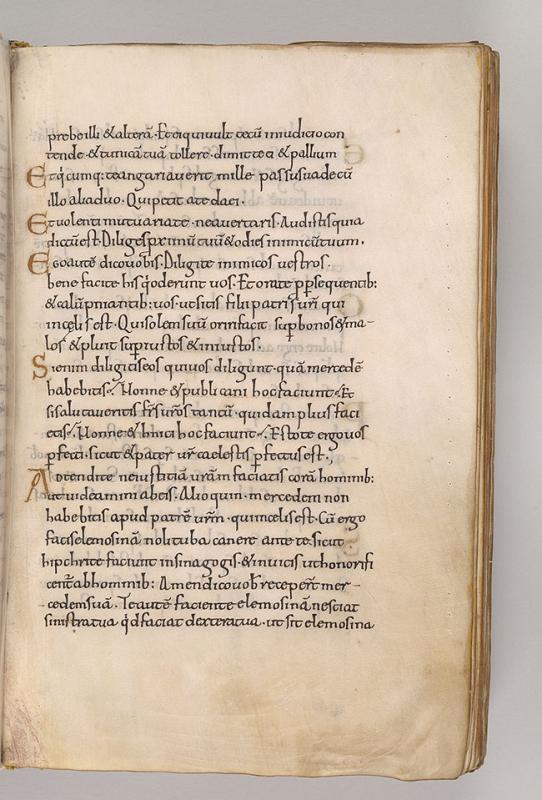 prebe illi & alterã. Et ei qui uult tecũ in iudicio con
tende & tunicã tuã tollere. dimitte ei & pallium
Et q̇cumq; te angariauerit mille passus uade cũ
illo alia duo. Qui petit a te da ei.
Et uolenti mutuari a te. ne auertaris. Audistis quia
dictũ est. Diliges pximũ tuũ & odies inimicũ tuum.
Ego autẽ dico uobis. Diligite inimicos uestros.
bene facite his q̇ oderunt uos. Et orate p psequentib:
& calũpniatitib: uos. ut sitis filii patris ur̃i qui
in celis est. Qui solem suũ oriri facit sup bonos & ma-
los & pluit sup iustos & iniustos.
Si enim diligitis eos qui uos diligunt. quã mercedẽ
habebitis? Nonne & publicani hoc faciunt? Et
si salutaueritis fr̃s ur̃os tantũ. quid amplius faci
etis? Nonne & hnici hoc faciunt? Estote ergo uos
pfecti. sicut & pater ur̃ caelestis pfectus est.
Adtendite ne iustitiã urãm faciatis corã hominib:
ut uideamini ab eis. Alioquin. mercedem non
habebitis apud patrẽ ur̃m. qui in celis est. Cũ ergo
facis elemosinã noli tuba canere ante te. sicut
hipchrite faciunt in sinagogis. & in uicis ut honorifi
cent̃ ab hominib: Amen dico uob receper̃t mer-
cedem suã. Te autẽ faciente elemosinã nesciat
sinistra tua q̇d faciat dextera tua. ut sit elemosina